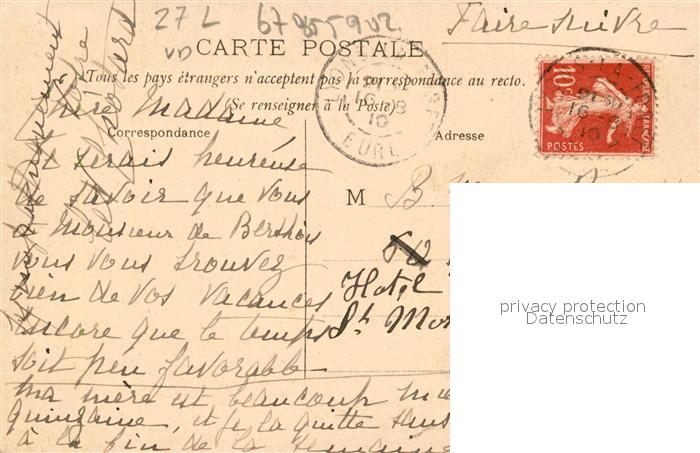 27 L 67855902
VD
Faire suivre
CARTE POSTALE
Tous les pays étrangers n'acceptent pas la correspondance au recto.
(Se renseigner à la Poste)
Correspondance
Adresse
10c
POSTES
EURE
16 8
10
Chère Madame
Je serais heureuse
de savoir que vous
et Monsieur de
vous vous trouvez
bien de vos vacances
encore que le temps
soit peu favorable
ma mère est beaucoup
quinzaine, et je la quitte sans
à la fin de la semaine
M B
Hotel
St Mor
privacy protection
Datenschutz